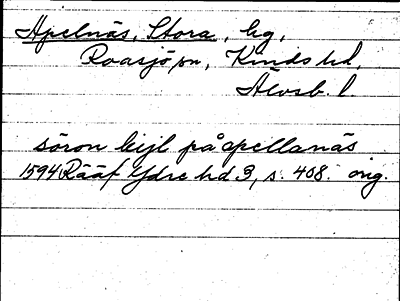 Apelnäs, Stora, hg,
Roasjö sn, Kinds hd,
Älvsb. l.
sören kijl på apellanäs
1594 Rääf Ydre hd 3, s. 408. orig.